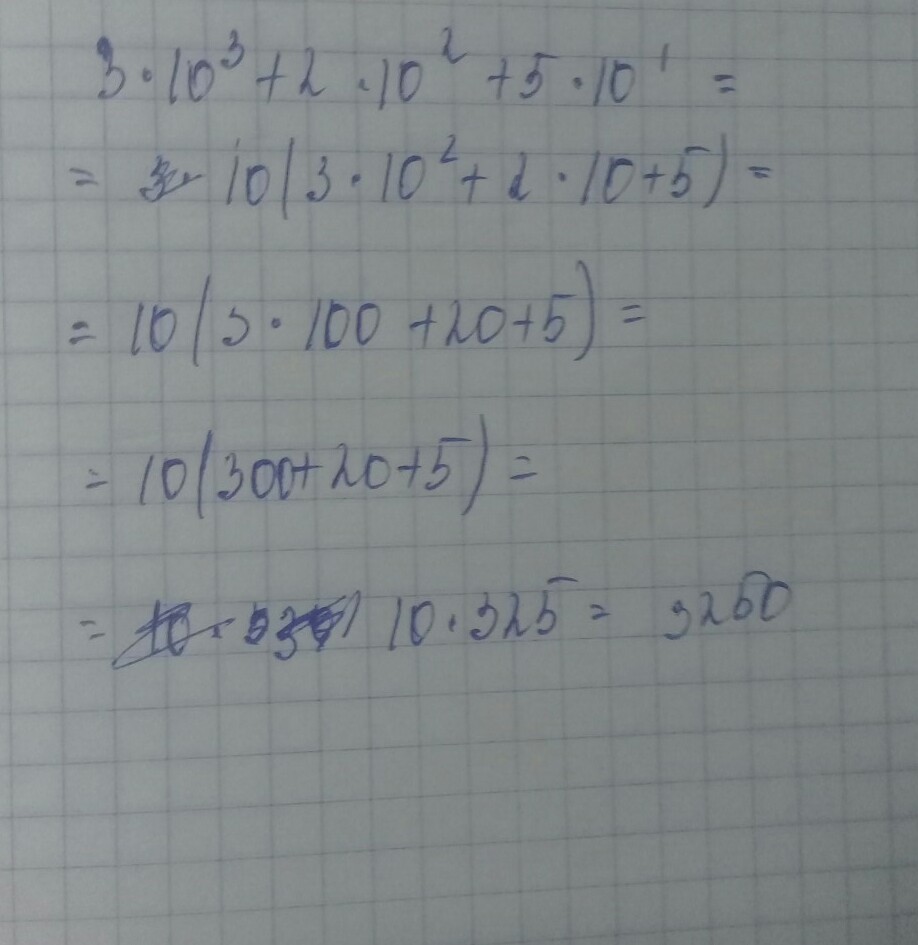 3·10³+2·10²+5·10¹=
=10(3·10²+2·10+5)=
=10(3·100+20+5)=
=10(300+20+5)=
=10·325=3250